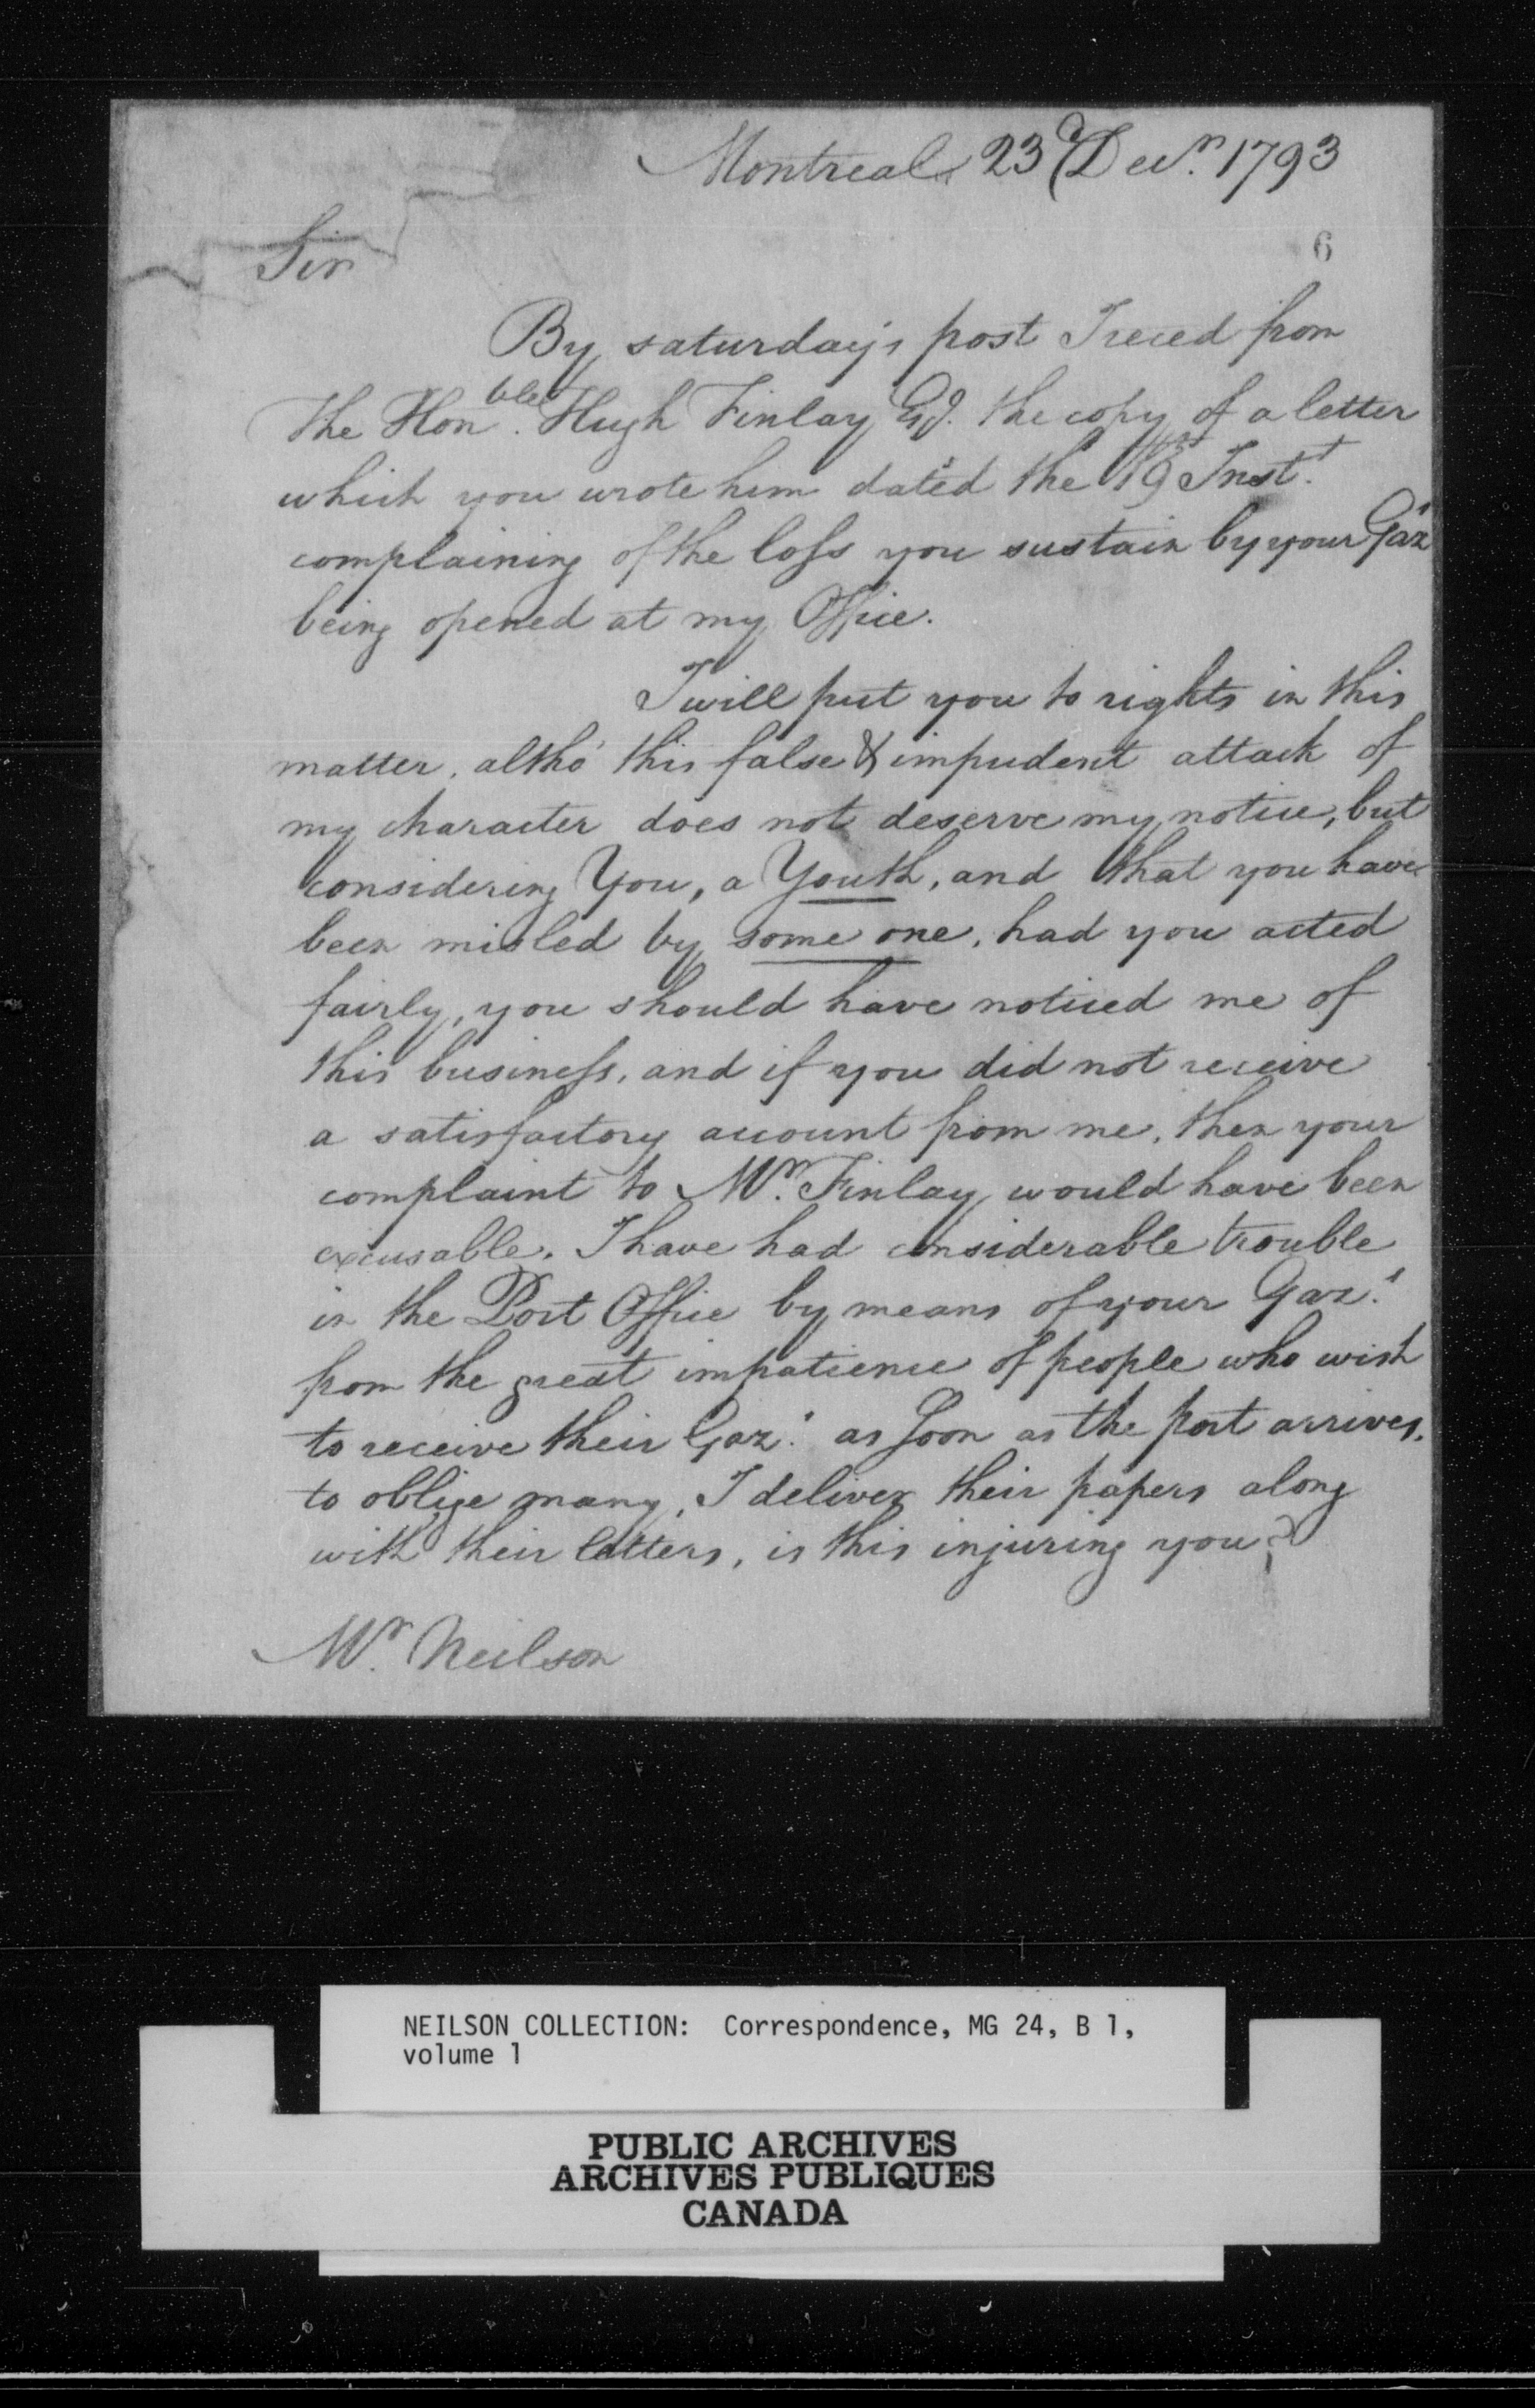 Montreal 23d Decr. 1793
6
Sir
By saturday's post I reced from
the Honble. Hugh Finlay Esq. the copy of a letter
which you wrote him dated the 19th Inst.
complaining of the loſs you sustain by your Gazs
being opened at my Office.
I will put you to rights in this
matter, altho' this false & impudent attack of
my character does not deserve my notice, but
considering You, a Youth, and that you have
been misled by some one, had you acted
fairly, you should have noticed me of
this busineſs, and if you did not receive
a satisfactory account from me, then your
complaint to Mr. Finlay would have been
excusable. I have had considerable trouble
in the Post Office by means of your Gazs.
from the great impatience of people who wish
to receive their Gazs. as soon as the post arrives.
to oblige many, I deliver their papers along
with their letters, is this injuring you?
Mr. Neilson
NEILSON COLLECTION: Correspondence, MG 24, B 1,
volume 1
PUBLIC ARCHIVES
ARCHIVES PUBLIQUES
CANADA